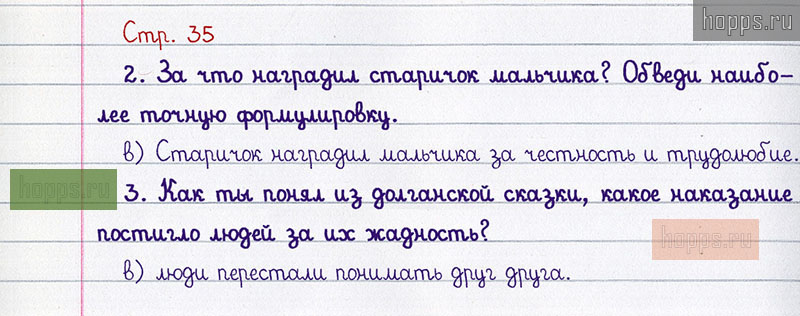 hopps.ru
Стр. 35
2. За что наградил старичок мальчика? Обведи наибо-
лее точную формулировку.
в) Старичок наградил мальчика за честность и трудолюбие.
hopps.ru 3. Как ты понял из долганской сказки, какое наказание
постигло людей за их жадность?
hopps.ru
в) люди перестали понимать друг друга.